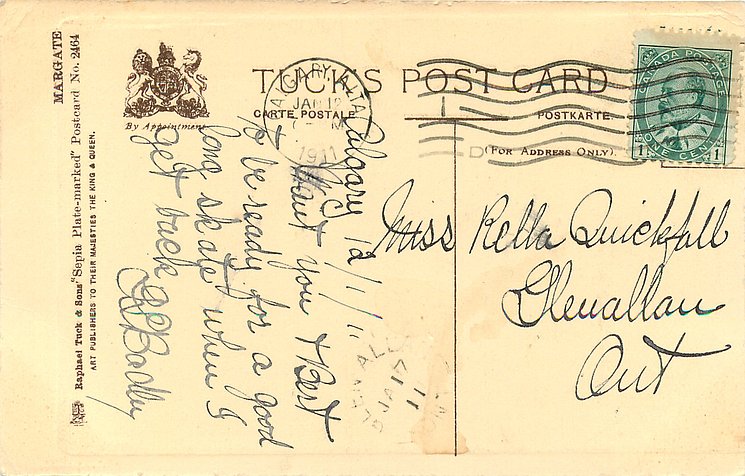 TUCK'S POST CARD
CARTE POSTALE
POSTKARTE.
(FOR ADDRESS ONLY).
By Appointment
MARGATE
Raphael Tuck & Sons' "Sepia Plate-marked" Postcard No. 2464
ART PUBLISHERS TO THEIR MAJESTIES THE KING & QUEEN.
CALGARY, ALTA.
JAN 12
1911
CANADA POSTAGE
1 ONE CENT 1
Calgary 12/1/11
want you & Bert
to be ready for a good
long skate when I
get back
Miss Rella Quickfall
Glenallan
Ont
GLENALLAN
JA 17
11
ONT